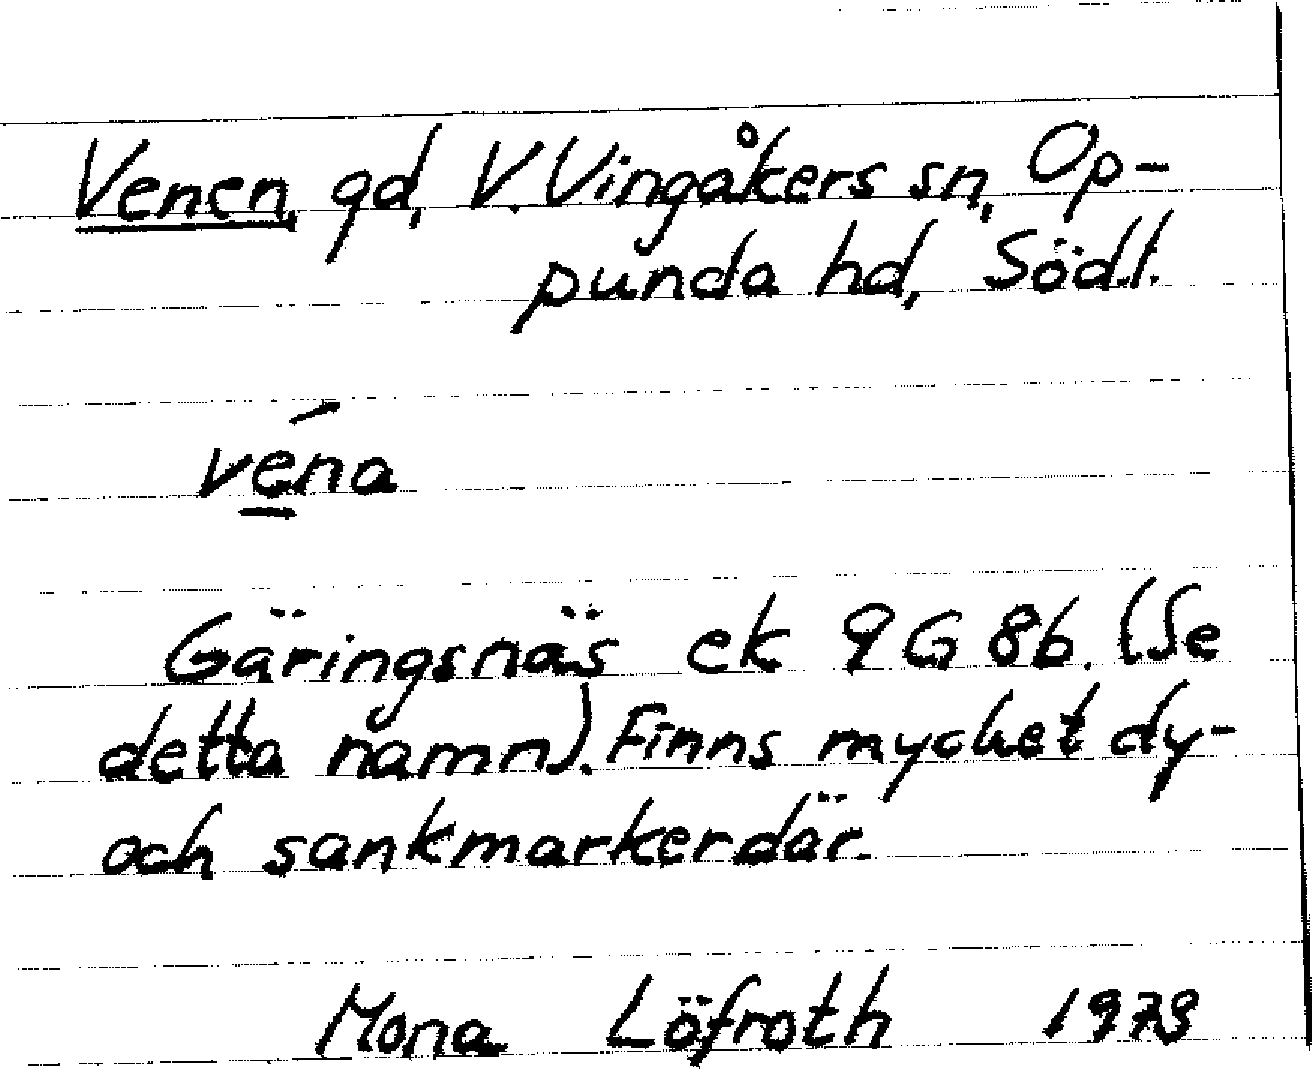 Venen, gd, V. Vingåkers sn, Op-
punda hd, Södl.
véna
Gäringsnäs ek 9G 8b. (Se
detta namn). Finns mycket dy-
och sankmarker där.
Mona Löfroth 1979